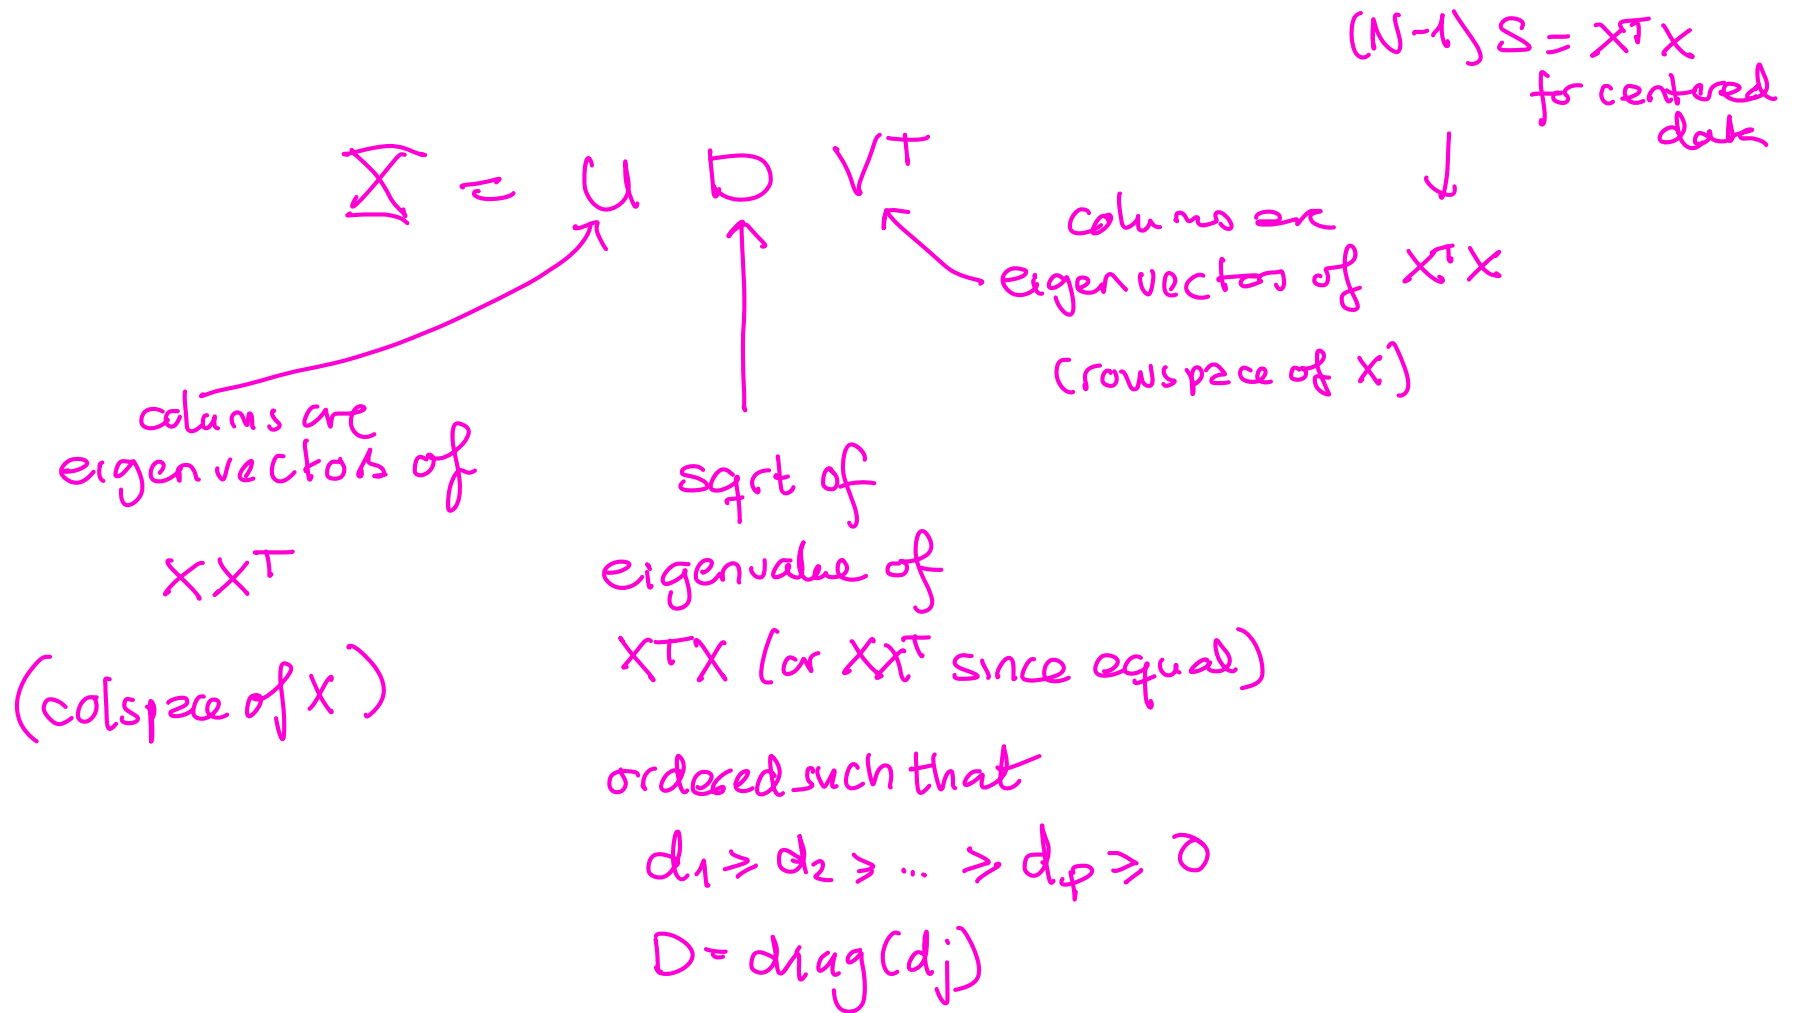 (N-1) S = XᵀX
for centered
data
X = U D Vᵀ
columns are
eigenvectors of XᵀX
(rowspace of X)
colums are
eigenvectors of
XXᵀ
(colspace of X)
sqrt of
eigenvalue of
XᵀX (or XXᵀ since equal)
ordered such that
d₁ ≥ d₂ ≥ ... ≥ dₚ ≥ 0
D = diag(dj)